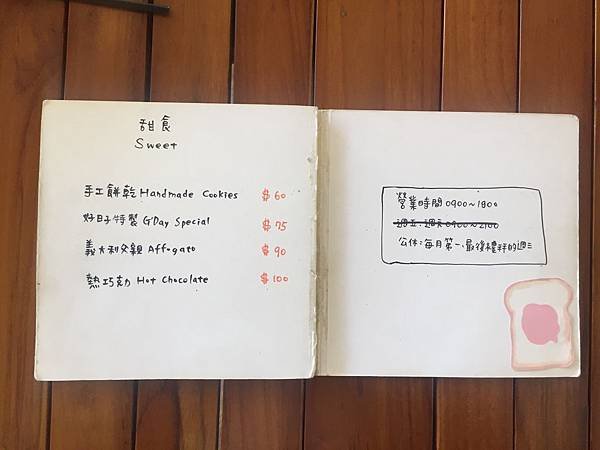 甜食
Sweet
手工餅乾 Handmade Cookies $60
好日子特製 G'Day Special $75
義大利交親 Affogato $90
熱巧克力 Hot Chocolate $100
營業時間 0900~1800
週五、週六 0900~2100
公休:每月第一、最後禮拜的週三